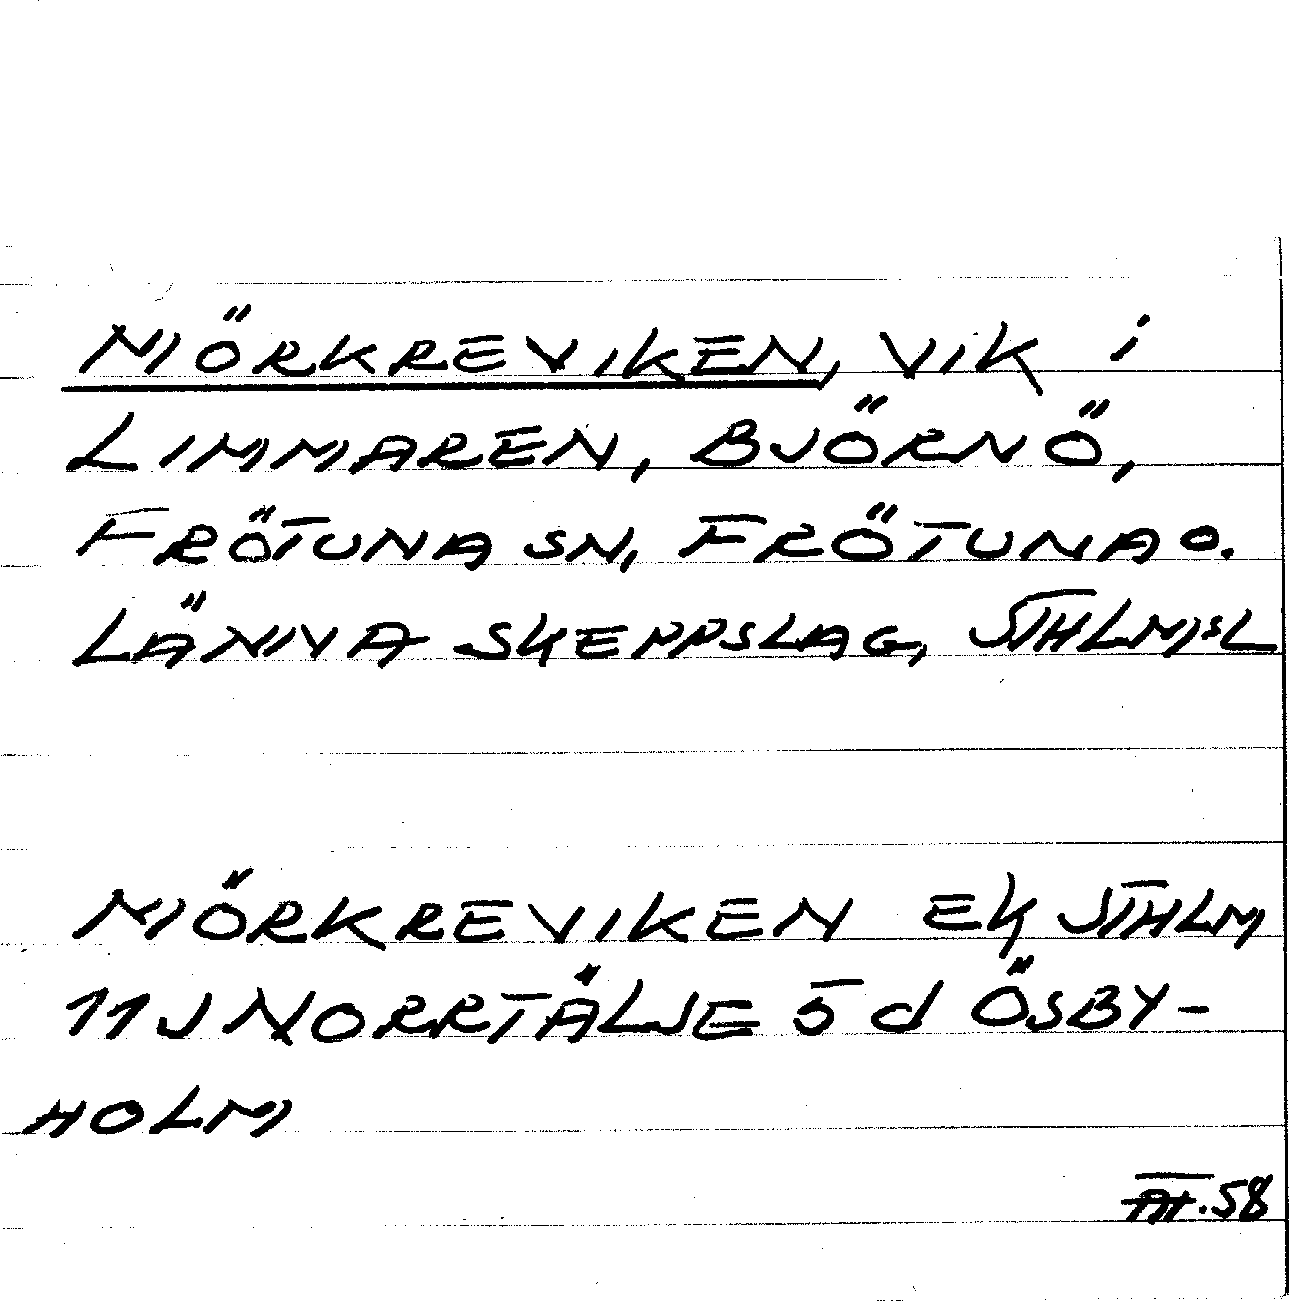 MÖRKREVIKEN, VIK i
LIMMAREN, BJÖRNÖ,
FRÖTUNA SN, FRÖTUNA O.
LÄNNA SKEPPSLAG, STHLMSL
MÖRKREVIKEN EK STHLM
11J NORRTÄLJE 5d ÖSBY-
HOLM
.58